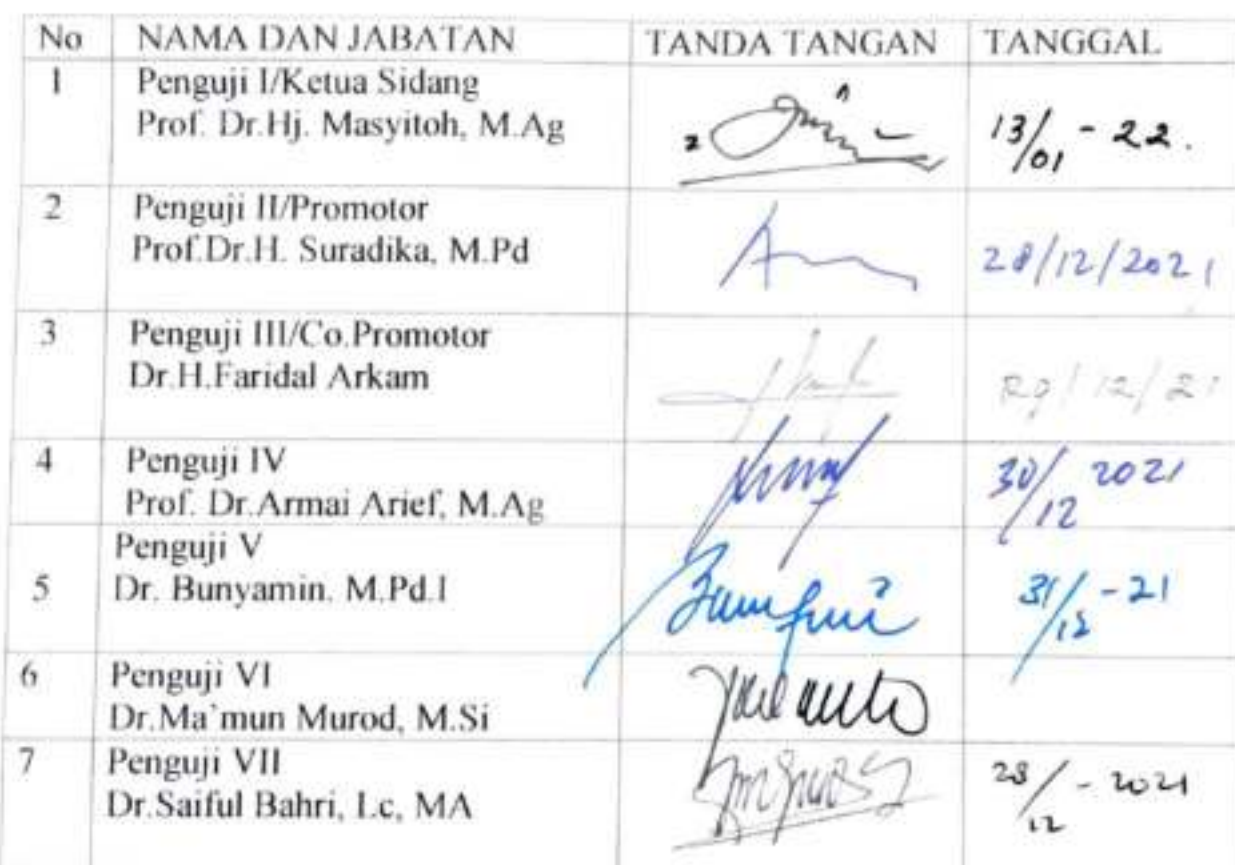 No NAMA DAN JABATAN TANDA TANGAN TANGGAL
1 Penguji I/Ketua Sidang
Prof. Dr.Hj. Masyitoh, M.Ag 13/01 - 22.
2 Penguji II/Promotor
Prof.Dr.H. Suradika, M.Pd 28/12/2021
3 Penguji III/Co.Promotor
Dr.H.Faridal Arkam 29/12/21
4 Penguji IV 30/12 2021
Prof. Dr.Armai Arief, M.Ag
Penguji V
5 Dr. Bunyamin. M.Pd.I 31/12 - 21
6 Penguji VI
Dr.Ma'mun Murod, M.Si
7 Penguji VII
Dr.Saiful Bahri, Lc, MA 28/12 - 2021